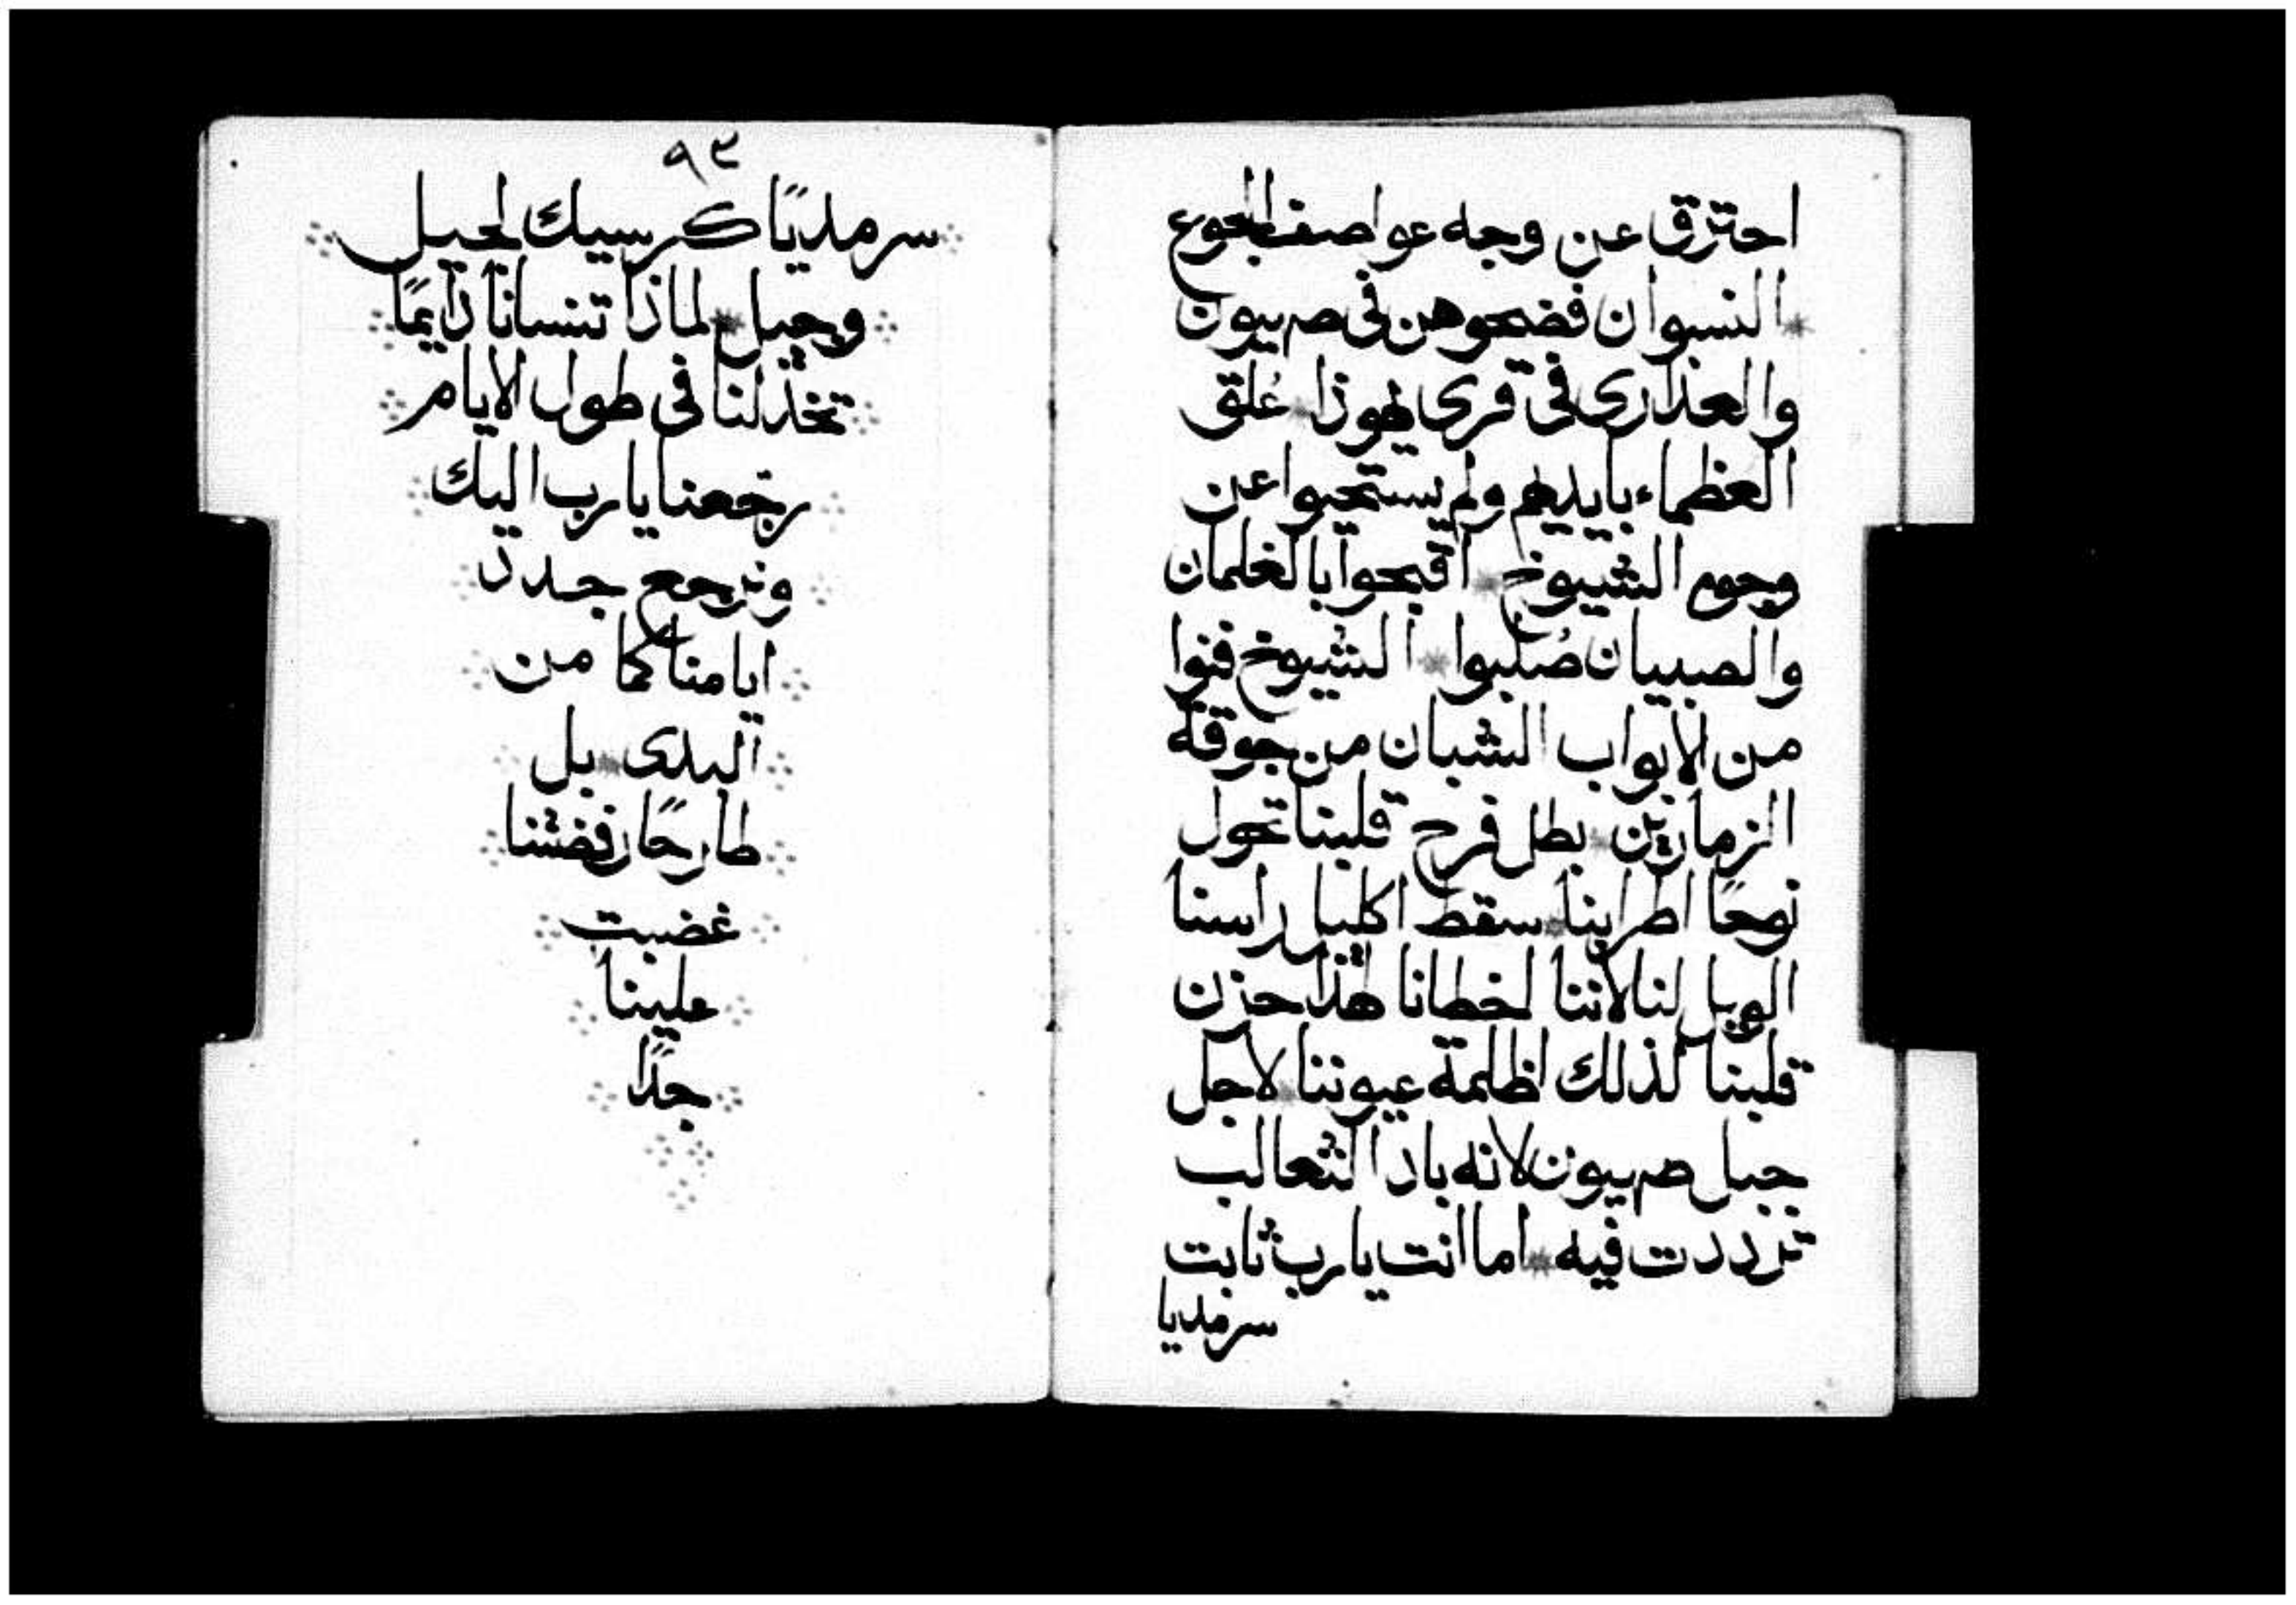 احترق عن وجه عواصف الجوع
النسوان فضحوهن فى صهيون
والعذارى فى قرى يهوذا * عُلق
العظماء بايديهم ولم يستحيوا عن
وجوه الشيوخ * اقبحوا بالغلمان
والصبيان صُلبوا * الشيوخ فنوا
من الابواب الشبان من جوقة
الزمارين * بطل فرح قلبنا تحول
نوحًا اطرابنا * سقط اكليل راسنا
الويل لنا لاننا لخطانا هذا حزن
قلبنا لذلك اظلمة عيوننا * لاجل
جبل صهيون لانه باد الثعالب
ترددت فيه * اما انت يارب ثابت
سرمديا
٩٣
سرمديًا كرسيك لجيل
وجيل * لماذا تنسانا دايمًا
تخذلنا فى طول الايام
رجعنا يارب اليك
ونرجع جدد
ايامنا كما من
البدى * بل
طارحًا رفضتنا
غضبت
علينا
جدًا